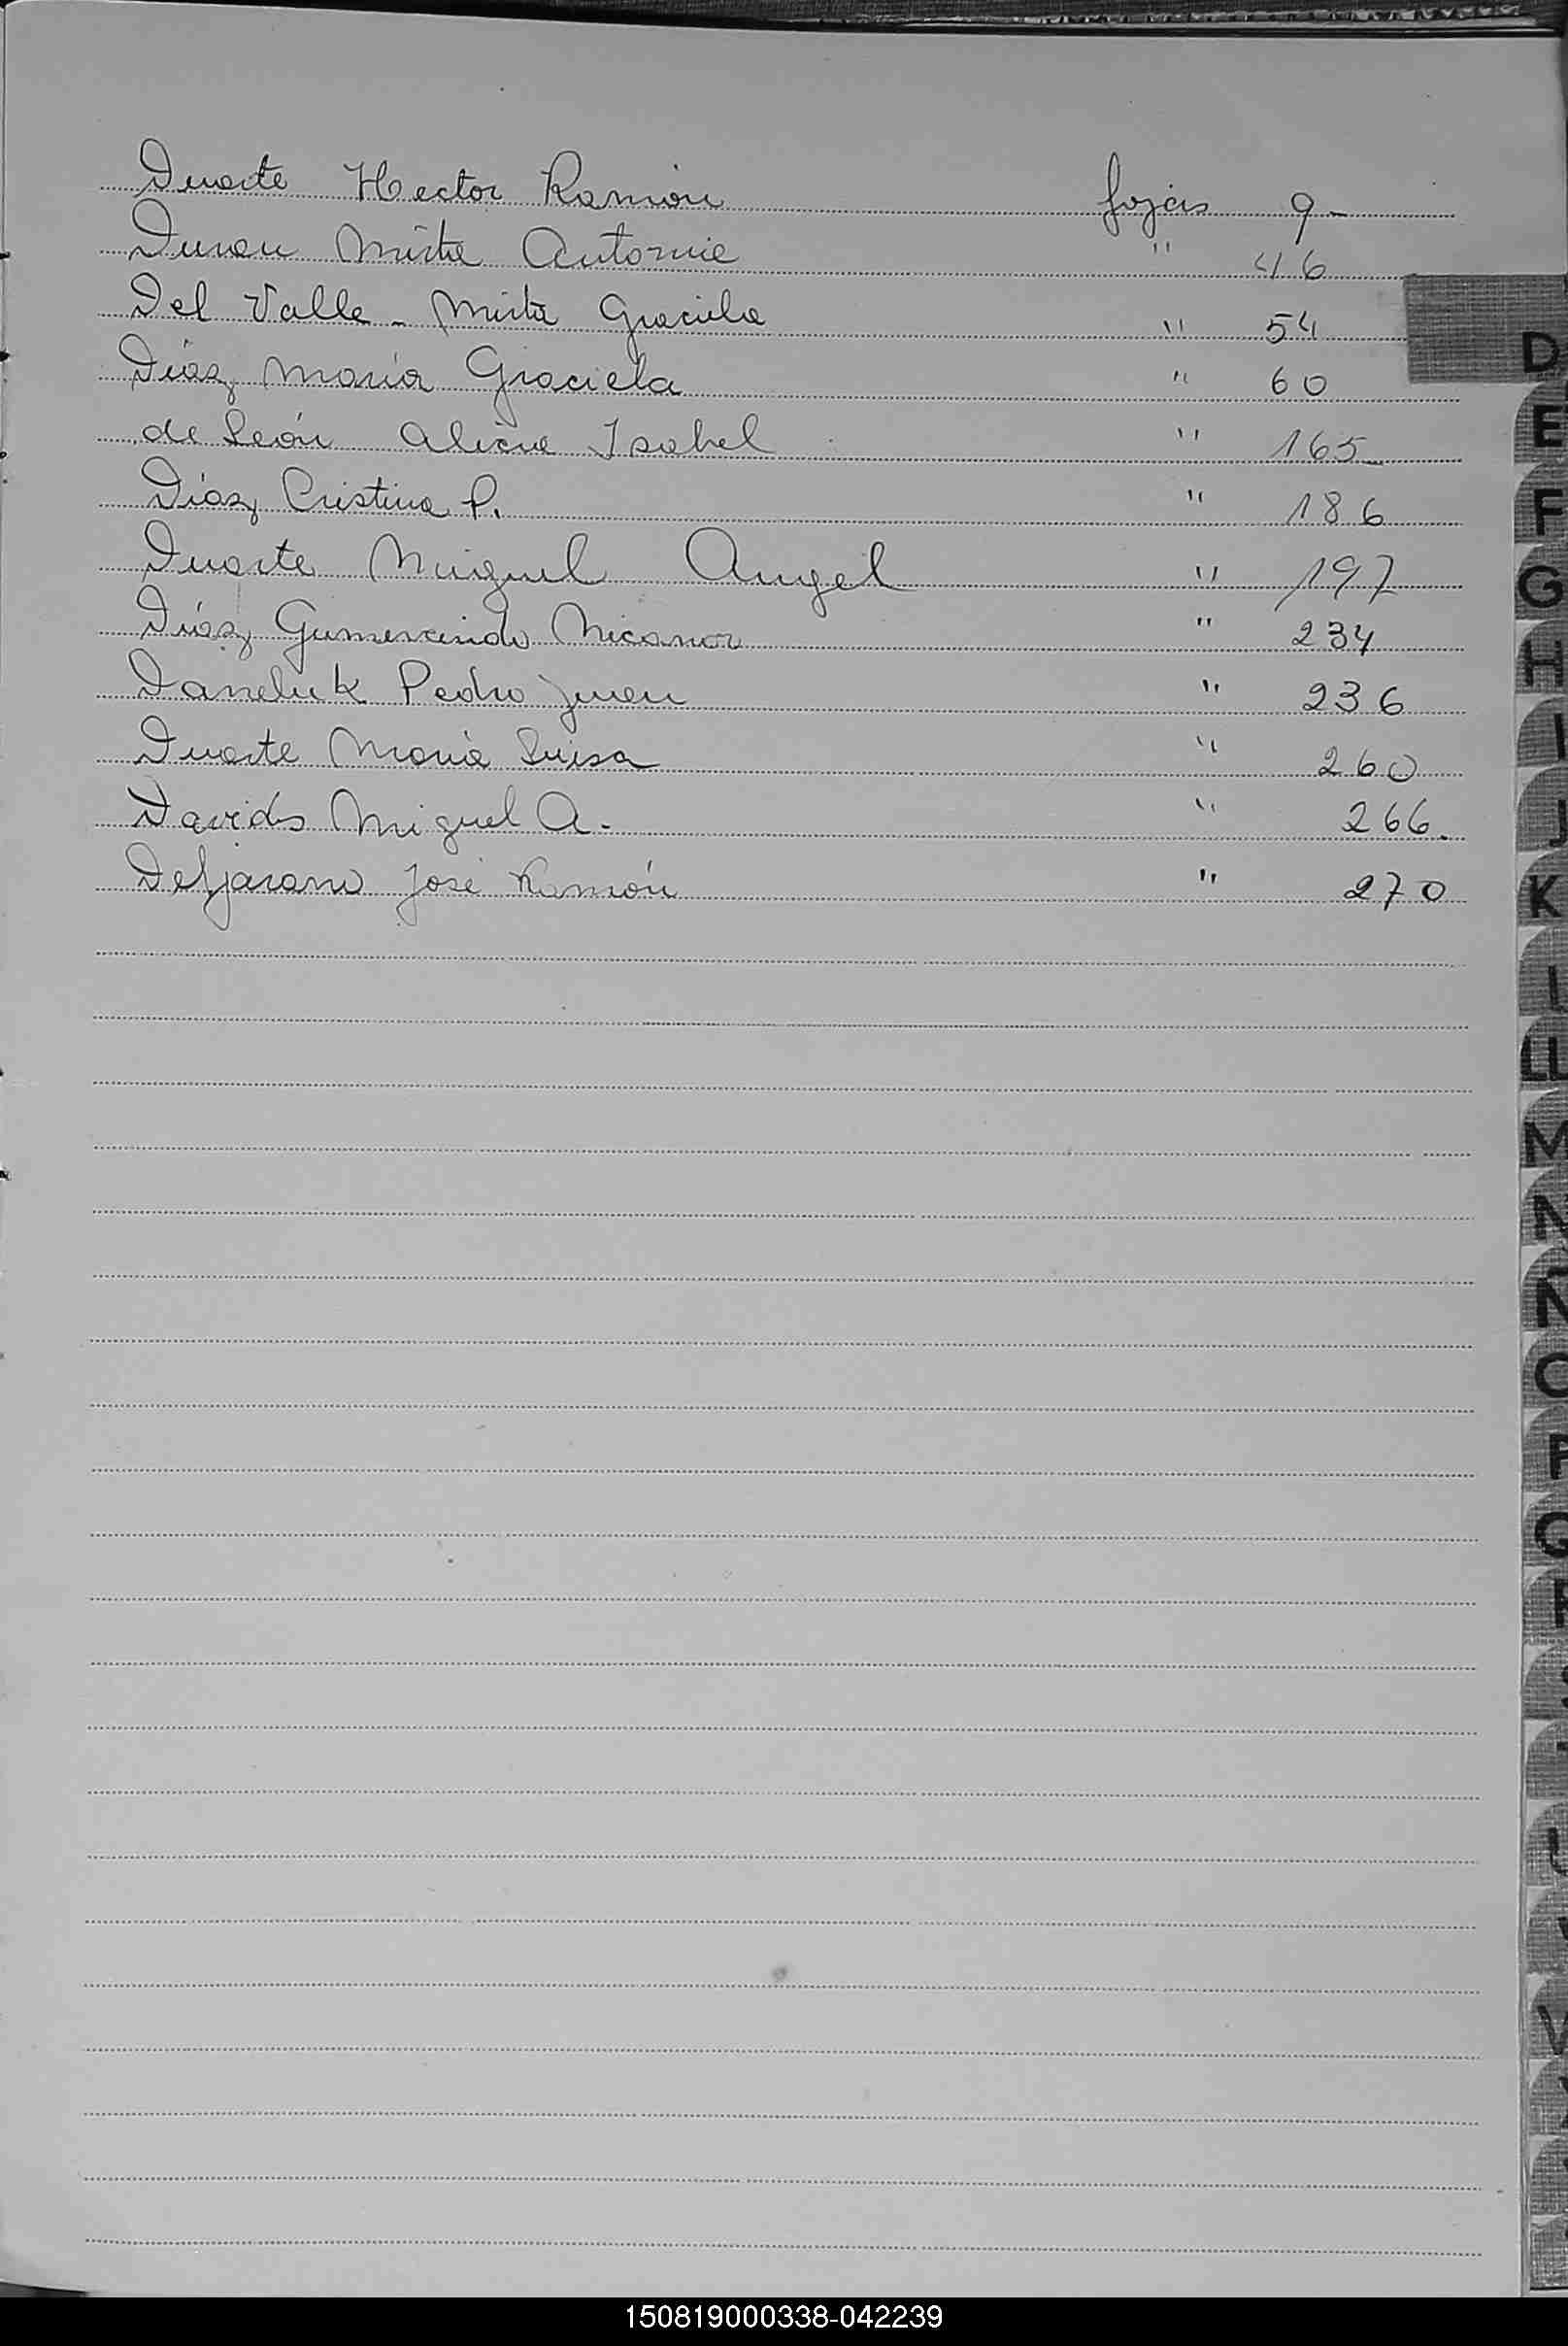 Duarte Hector Ramón fojas 9-
Duran Mirta Antonia " 46
Del Valle - Mirta Graciela " 54
Díaz María Graciela " 60
de León Alicia Isabel " 165
Díaz Cristina P. " 186
Duarte Miguel Angel " 197
Díaz Gumercindo Nicanor " 234
Daneluk Pedro Juan " 236
Duarte María Luisa " 260
Davids Miguel A. " 266.
José Ramón " 270
D
E
F
G
H
I
J
K
L
LL
M
N
Ñ
O
P
Q
R
S
150819000338-042239